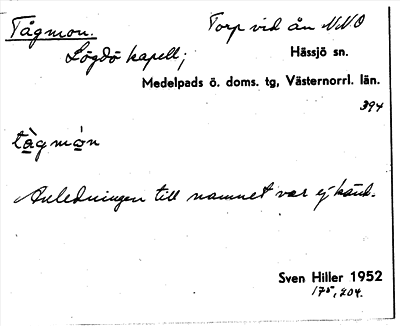 Tågmon. Torp vid ån NNO
Lögdö kapell; Hässjö sn.
Medelpads ö. doms. tg, Västernorrl. län.
394
tàgmòn
Anledningen till namnet var ej känd.
Sven Hiller 1952
175, 204.